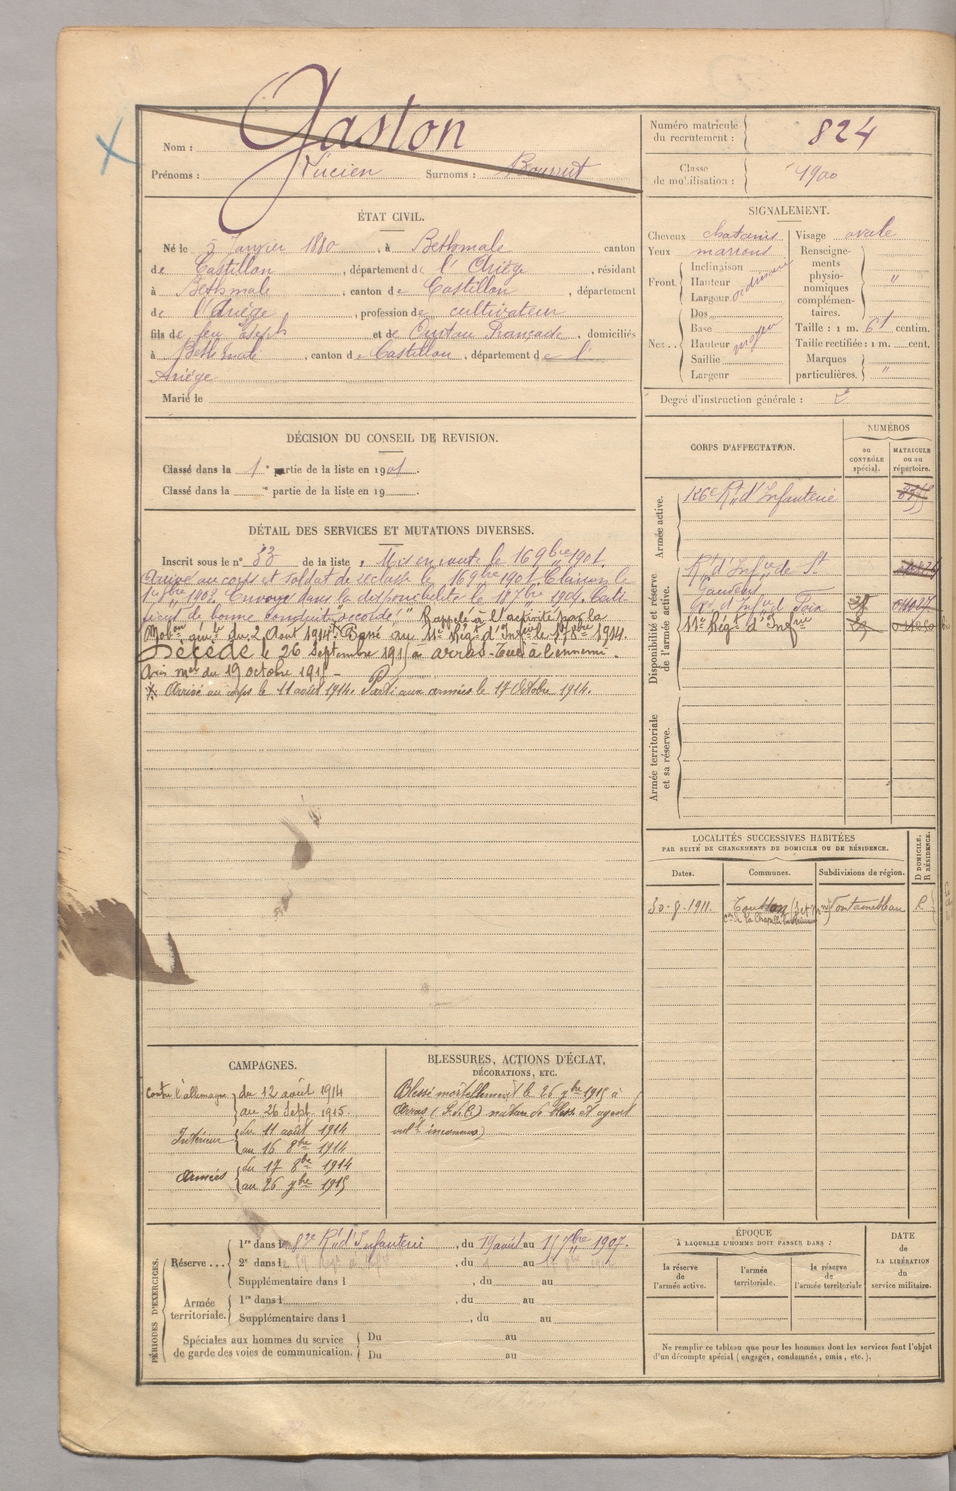 Nom : Gaston
Prénoms : Lucien Surnoms :
Numéro matricule du recrutement : 824
Classe de mobilisation : 1900
ÉTAT CIVIL.
Né le 5 Janvier 1880, à Bethmale canton
de Castillon, département de l'Ariège, résidant
à Bethmale, canton de Castillon, département
de l'Ariège, profession de cultivateur
fils de feu Joseph et de Françoise, domiciliés
à Bethmale, canton de Castillon, département de l'
Ariège
Marié le
SIGNALEMENT.
Cheveux chatains
Yeux marrons
Front. Inclinaison
Hauteur
Largeur
ordinaire
Nez.. Dos
Base
Hauteur
Saillie
Largeur
Visage ovale
Renseignements physionomiques complémentaires. "
Taille : 1 m. 61 centim.
Taille rectifiée : 1 m. cent.
Marques particulières. "
Degré d'instruction générale :
DÉCISION DU CONSEIL DE REVISION.
Classé dans la 1e partie de la liste en 1901.
Classé dans la e partie de la liste en 19
CORPS D'AFFECTATION.
NUMÉROS
au CONTRÔLE spécial.
MATRICULE ou au répertoire.
Armée active.
126e Rt d'Infanterie
Disponibilité et réserve de l'armée active.
Rt d'Infie de St
Gaudens
d'Infie de Foix
11e Régt d'Infrie
Armée territoriale et sa réserve.
DÉTAIL DES SERVICES ET MUTATIONS DIVERSES.
Inscrit sous le n° 33 de la liste, Mis en route le 16 9bre 1901.
Arrivé au corps et soldat de 2e classe le 16 9bre 1901. Clairon le
9bre 1902. Envoyé dans la disponibilité le 1904. Certi-
ficat de bonne conduite "accordé". Rappelé à l'activité par la
Mobon gale du 2 Août 1914. Passé au 11e Régt d'Infie le 1914.
Décédé le 26 Septembre 1915 à Arras. Tué à l'ennemi.
Avis mel du 19 octobre 1915 -
* Arrivé au corps le 11 août 1914. Parti aux armées le 17 Octobre 1914.
LOCALITÉS SUCCESSIVES HABITÉES
PAR SUITE DE CHANGEMENTS DE DOMICILE OU DE RÉSIDENCE.
Dates.
Communes.
Subdivisions de région.
D DOMICILE. R RÉSIDENCE.
30-8-1911. (Set Mne) Fontainebleau R
CAMPAGNES.
Contre l'Allemagne. du 12 août 1914
au 26 Sept. 1915.
Intérieur du 11 août 1914
au 16 8bre 1914
Armées du 17 8bre 1914
au 26 9bre 1915
BLESSURES, ACTIONS D'ÉCLAT,
DÉCORATIONS, ETC.
Blessé mortellement le 26 9bre 1915 à
Arras (P. de C.) nature de bless et agent
inconnus)
PÉRIODES D'EXERCICES.
Réserve... 1re dans le Rt d'Infanterie, du 19 août au 1907.
2e dans l , du au
Supplémentaire dans l , du au
Armée territoriale. 1re dans l , du au
Supplémentaire dans l , du au
Spéciales aux hommes du service de garde des voies de communication. Du au
Du au
ÉPOQUE
À LAQUELLE L'HOMME DOIT PASSER DANS :
la réserve de l'armée active.
l'armée territoriale.
la réserve de l'armée territoriale
DATE de LA LIBÉRATION du service militaire.
Ne remplir ce tableau que pour les hommes dont les services font l'objet
d'un décompte spécial (engagés, condamnés, omis, etc.).